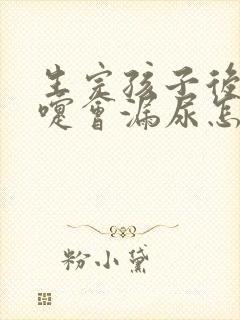 生完孩子後
嚏會漏尿怎
粉小黛